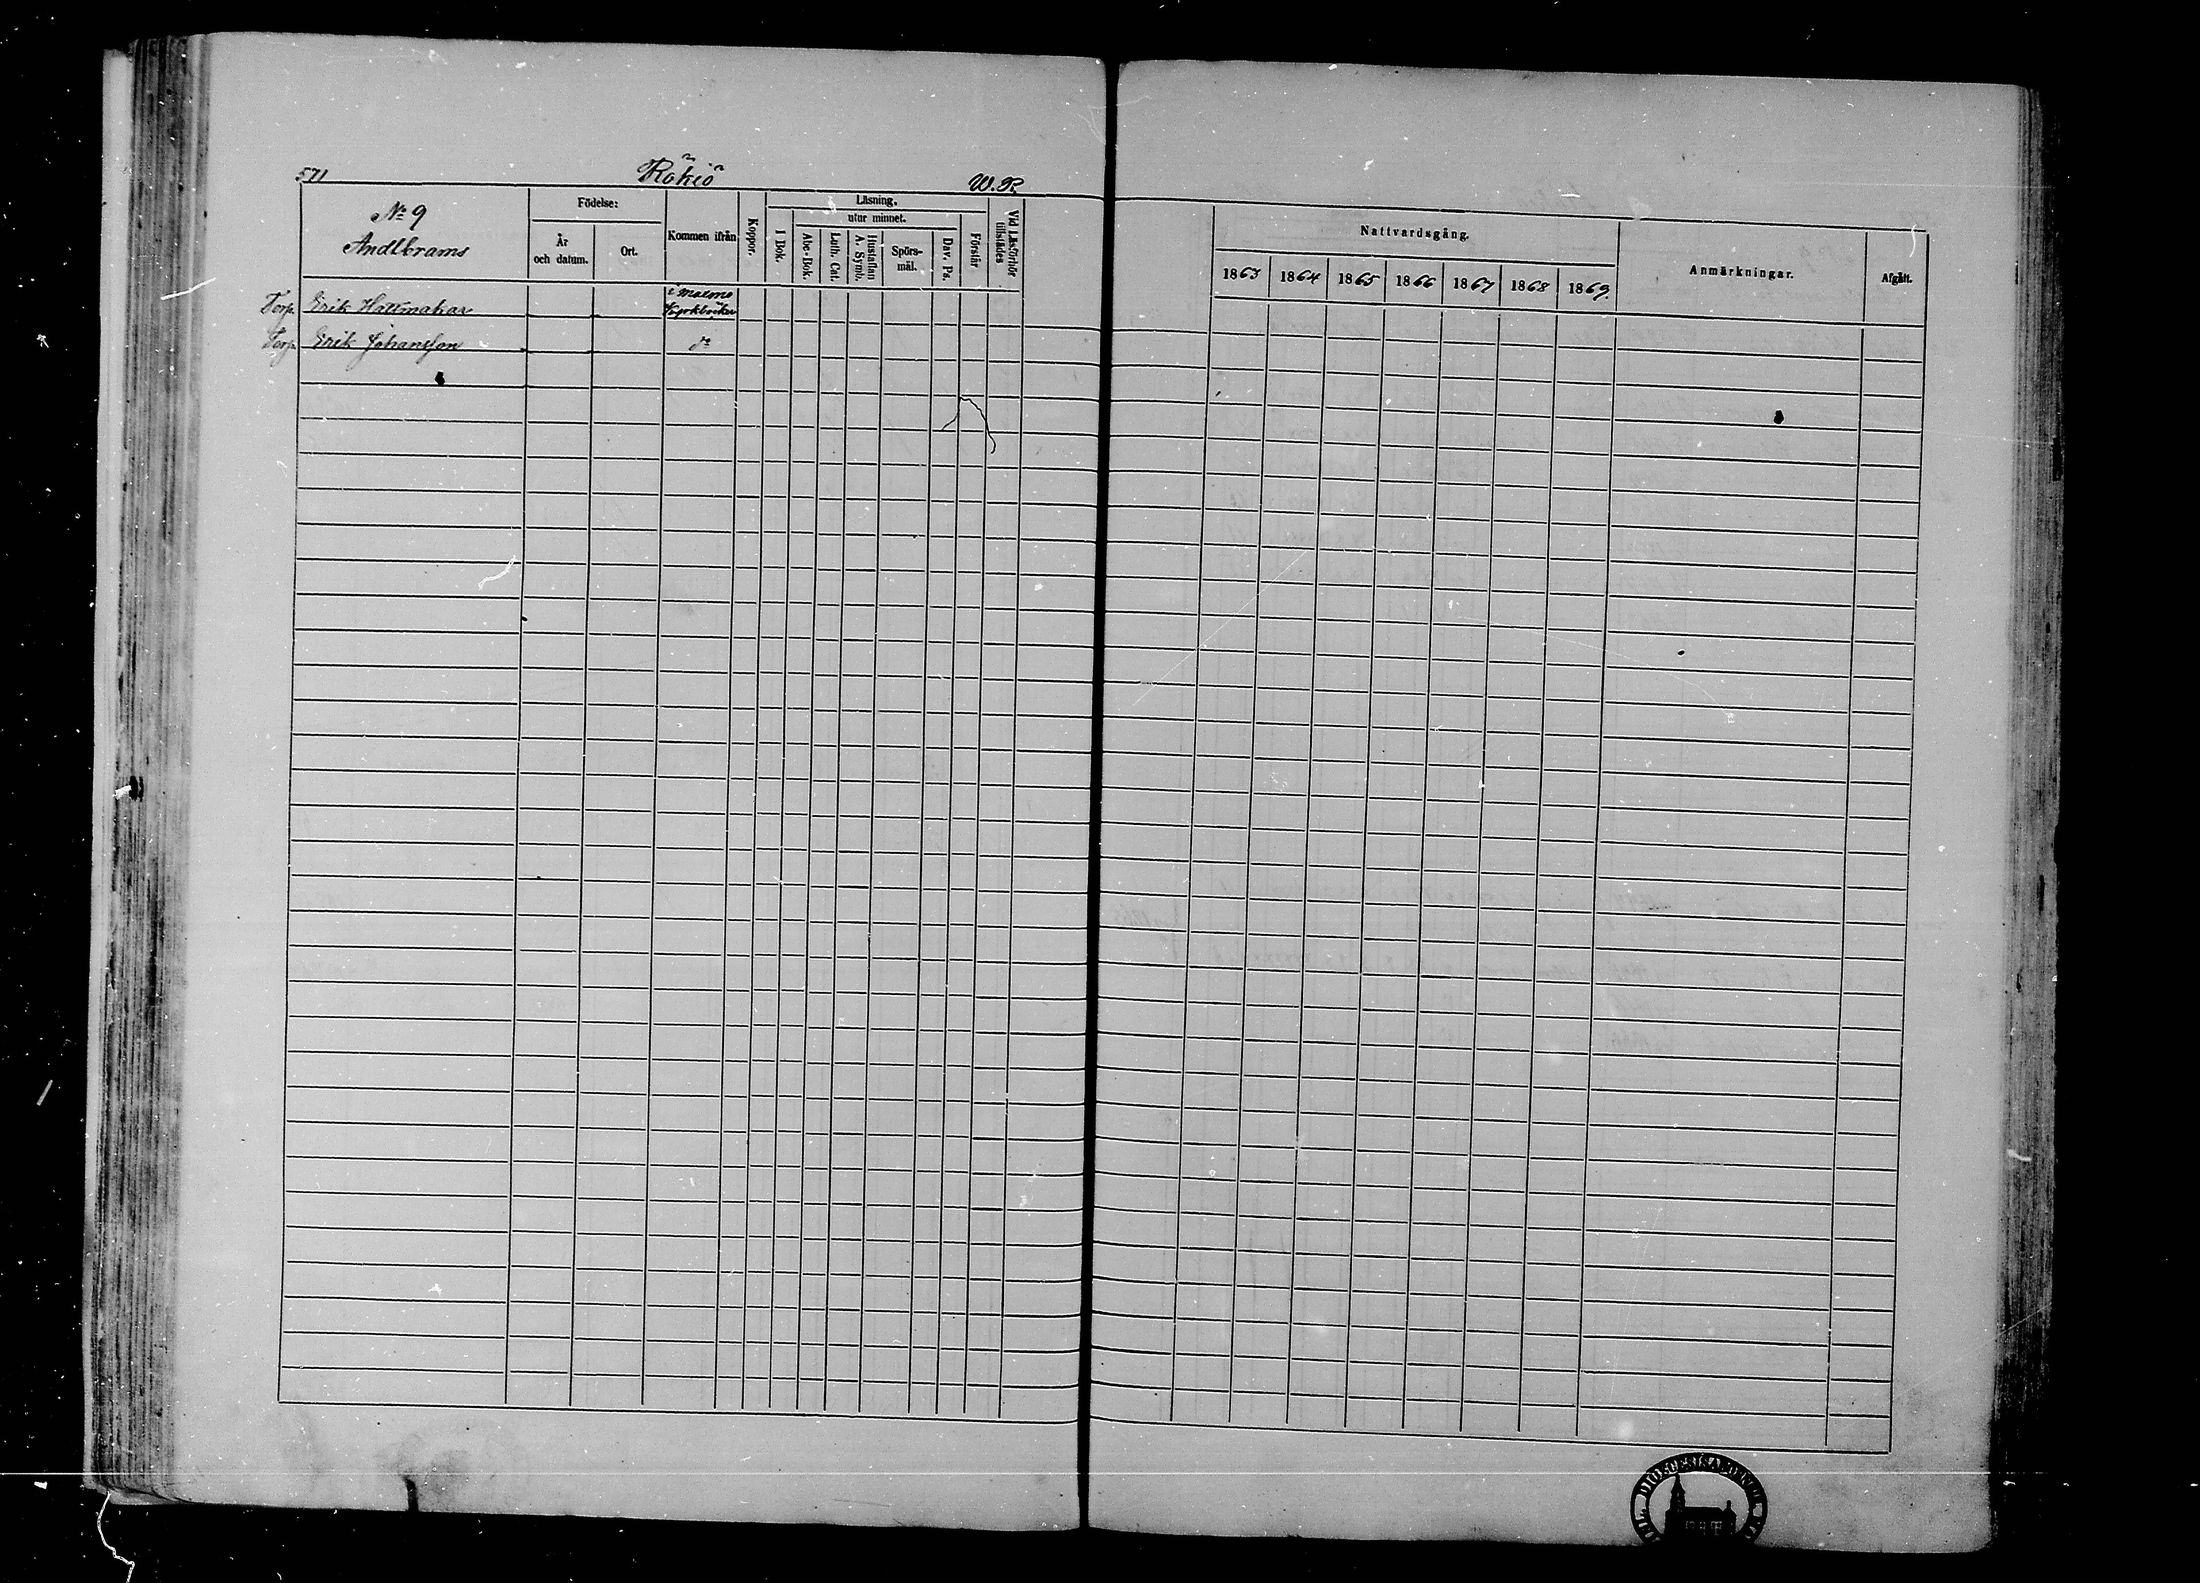 571 Rökiö W. R.
No 9
Andlbrams
Födelse:
År och datum.
Ort.
Kommen ifrån
Koppor.
Läsning.
I Bok.
utur minnet.
Abc-Bok.
Luth. Cat.
Hustaflan A. Symb.
Spörs-mål.
Dav. Ps.
Förstår
Vid Läsförhör tillstädes
Nattvardsgång.
1863 1864 1865 1866 1867 1868 1869.
Anmärkningar.
Afgått.
Torp. Erik Hattmakar i Malms Kyrkböcker
Torp. Erik Johansson do